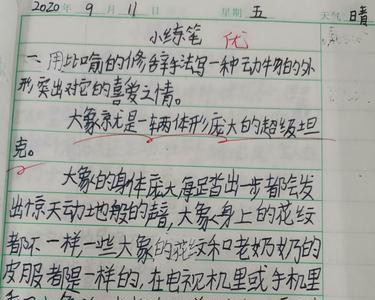 2020年9月11日 星期五 天气晴
小练笔 优
一、用比喻的修辞手法写一种动物的外
形突出对它的喜爱之情。
大象就是一辆体形庞大的超级坦
克。
大象的身体庞大,每足沓出一步都会发
出惊天动地般的声音,大象身上的花纹
都不一样,一些大象的花纹和老奶奶的
皮服都是一样的,在电视机里或手机里